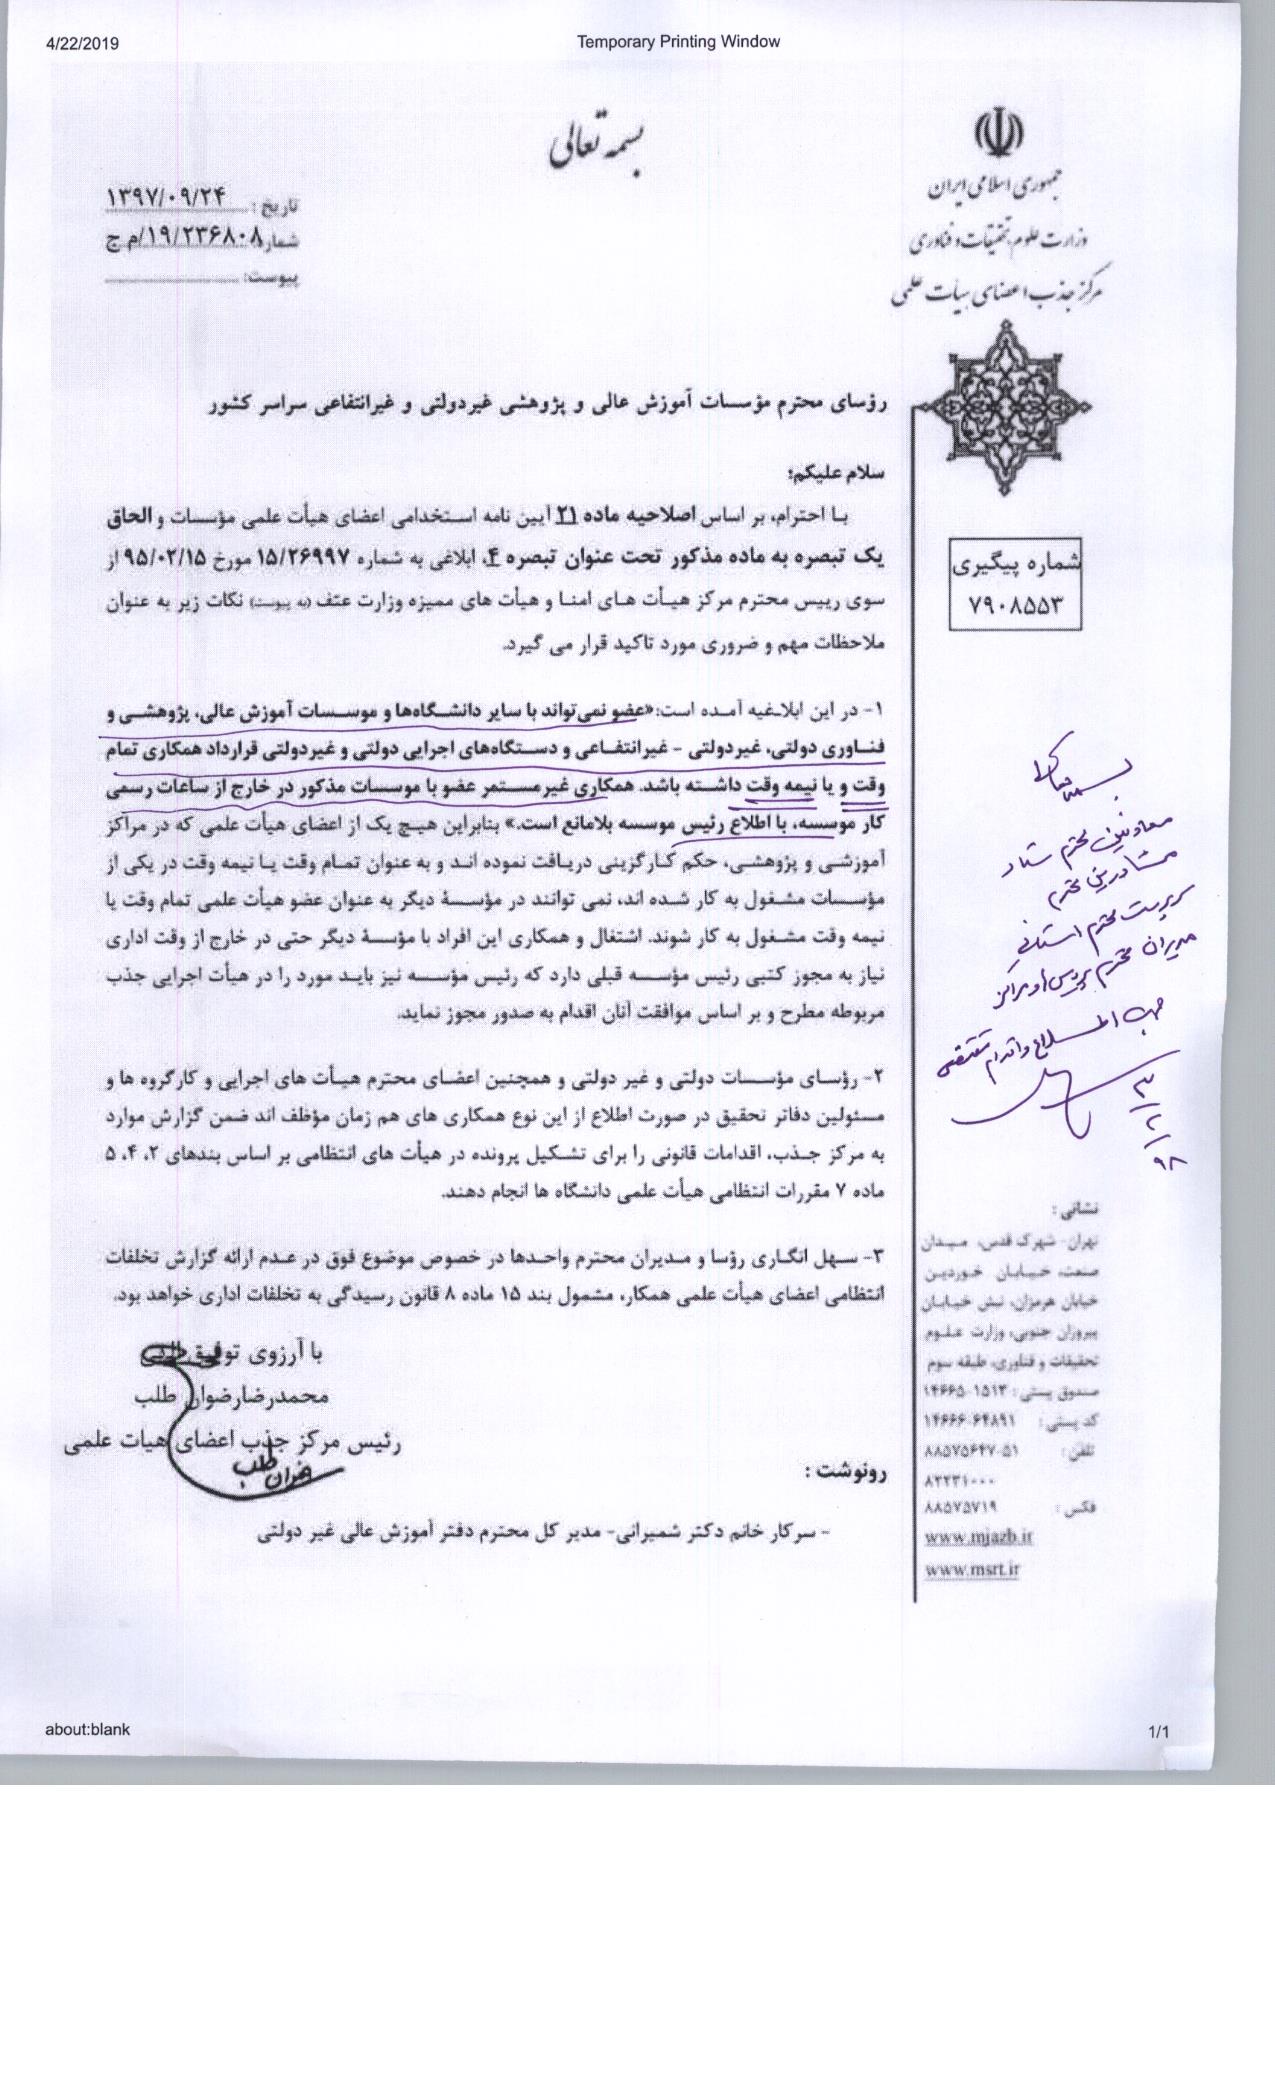 4/22/2019
Temporary Printing Window
بسمه تعالی
جمهوری اسلامی ایران
وزارت علوم، تحقیقات و فناوری
مرکز جذب اعضای هیأت علمی
تاریخ: ۱۳۹۷/۰۹/۲۴
شماره ۱۹/۲۳۶۸۰۸/م ج
پیوست:
شماره پیگیری
۷۹۰۸۵۵۳
رؤسای محترم مؤسسات آموزش عالی و پژوهشی غیردولتی و غیرانتفاعی سراسر کشور
سلام علیکم؛
با احترام، بر اساس اصلاحیه ماده ۲۱ آیین نامه استخدامی اعضای هیأت علمی مؤسسات و الحاق
یک تبصره به ماده مذکور تحت عنوان تبصره ۴، ابلاغی به شماره ۱۵/۲۶۹۹۷ مورخ ۹۵/۰۲/۱۵ از
سوی رییس محترم مرکز هیأت های امنا و هیأت های ممیزه وزارت عتف (به پیوست) نکات زیر به عنوان
ملاحظات مهم و ضروری مورد تاکید قرار می گیرد.
۱- در این ابلاغیه آمده است:«عضو نمی‌تواند با سایر دانشگاه‌ها و موسسات آموزش عالی، پژوهشی و
فناوری دولتی، غیردولتی - غیرانتفاعی و دستگاه‌های اجرایی دولتی و غیردولتی قرارداد همکاری تمام
وقت و یا نیمه وقت داشته باشد. همکاری غیرمستمر عضو با موسسات مذکور در خارج از ساعات رسمی
کار موسسه، با اطلاع رئیس موسسه بلامانع است.» بنابراین هیچ یک از اعضای هیأت علمی که در مراکز
آموزشی و پژوهشی، حکم کارگزینی دریافت نموده اند و به عنوان تمام وقت یا نیمه وقت در یکی از
مؤسسات مشغول به کار شده اند، نمی توانند در مؤسسۀ دیگر به عنوان عضو هیأت علمی تمام وقت یا
نیمه وقت مشغول به کار شوند. اشتغال و همکاری این افراد با مؤسسۀ دیگر حتی در خارج از وقت اداری
نیاز به مجوز کتبی رئیس مؤسسه قبلی دارد که رئیس مؤسسه نیز باید مورد را در هیأت اجرایی جذب
مربوطه مطرح و بر اساس موافقت آنان اقدام به صدور مجوز نماید.
۲- رؤسای مؤسسات دولتی و غیر دولتی و همچنین اعضای محترم هیأت های اجرایی و کارگروه ها و
مسئولین دفاتر تحقیق در صورت اطلاع از این نوع همکاری های هم زمان مؤظف اند ضمن گزارش موارد
به مرکز جذب، اقدامات قانونی را برای تشکیل پرونده در هیأت های انتظامی بر اساس بندهای ۲، ۴، ۵
ماده ۷ مقررات انتظامی هیأت علمی دانشگاه ها انجام دهند.
۳- سهل انگاری رؤسا و مدیران محترم واحدها در خصوص موضوع فوق در عدم ارائه گزارش تخلفات
انتظامی اعضای هیأت علمی همکار، مشمول بند ۱۵ ماده ۸ قانون رسیدگی به تخلفات اداری خواهد بود.
با آرزوی توفیق الهی
محمدرضا رضوان طلب
رئیس مرکز جذب اعضای هیات علمی
رونوشت :
- سرکار خانم دکتر شمیرانی- مدیر کل محترم دفتر آموزش عالی غیر دولتی
بسمه تعالی
معاونین محترم ستاد
مشاورین محترم
سرپرست محترم استانی
مدیران محترم پردیس‌ها و مراکز
جهت اطلاع و اقدام مقتضی
۹۸/۲/۳
نشانی :
تهران- شهرک قدس، میدان
صنعت، خیابان خوردین
خیابان هرمزان، نبش خیابان
پیروزان جنوبی، وزارت علوم
تحقیقات و فناوری، طبقه سوم
صندوق پستی : ۱۴۶۶۵-۱۵۱۳
کد پستی : ۱۴۶۶۶-۶۴۸۹۱
تلفن : ۸۸۵۷۵۶۴۷-۵۱
۸۲۲۳۱۰۰۰
فکس : ۸۸۵۷۵۷۱۹
www.mjazb.ir
www.msrt.ir
about:blank
1/1